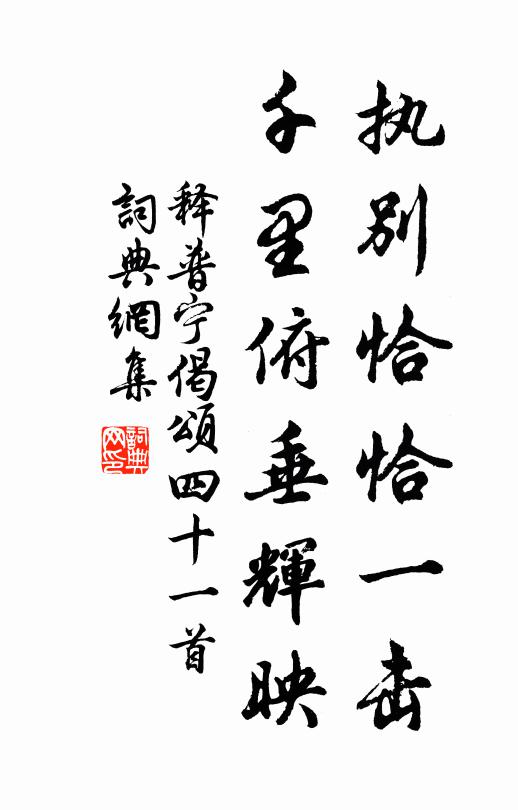 执别恰恰一击
千里俯垂輝映
释普宁偈颂四十一首
詞典網集
詞典
网印